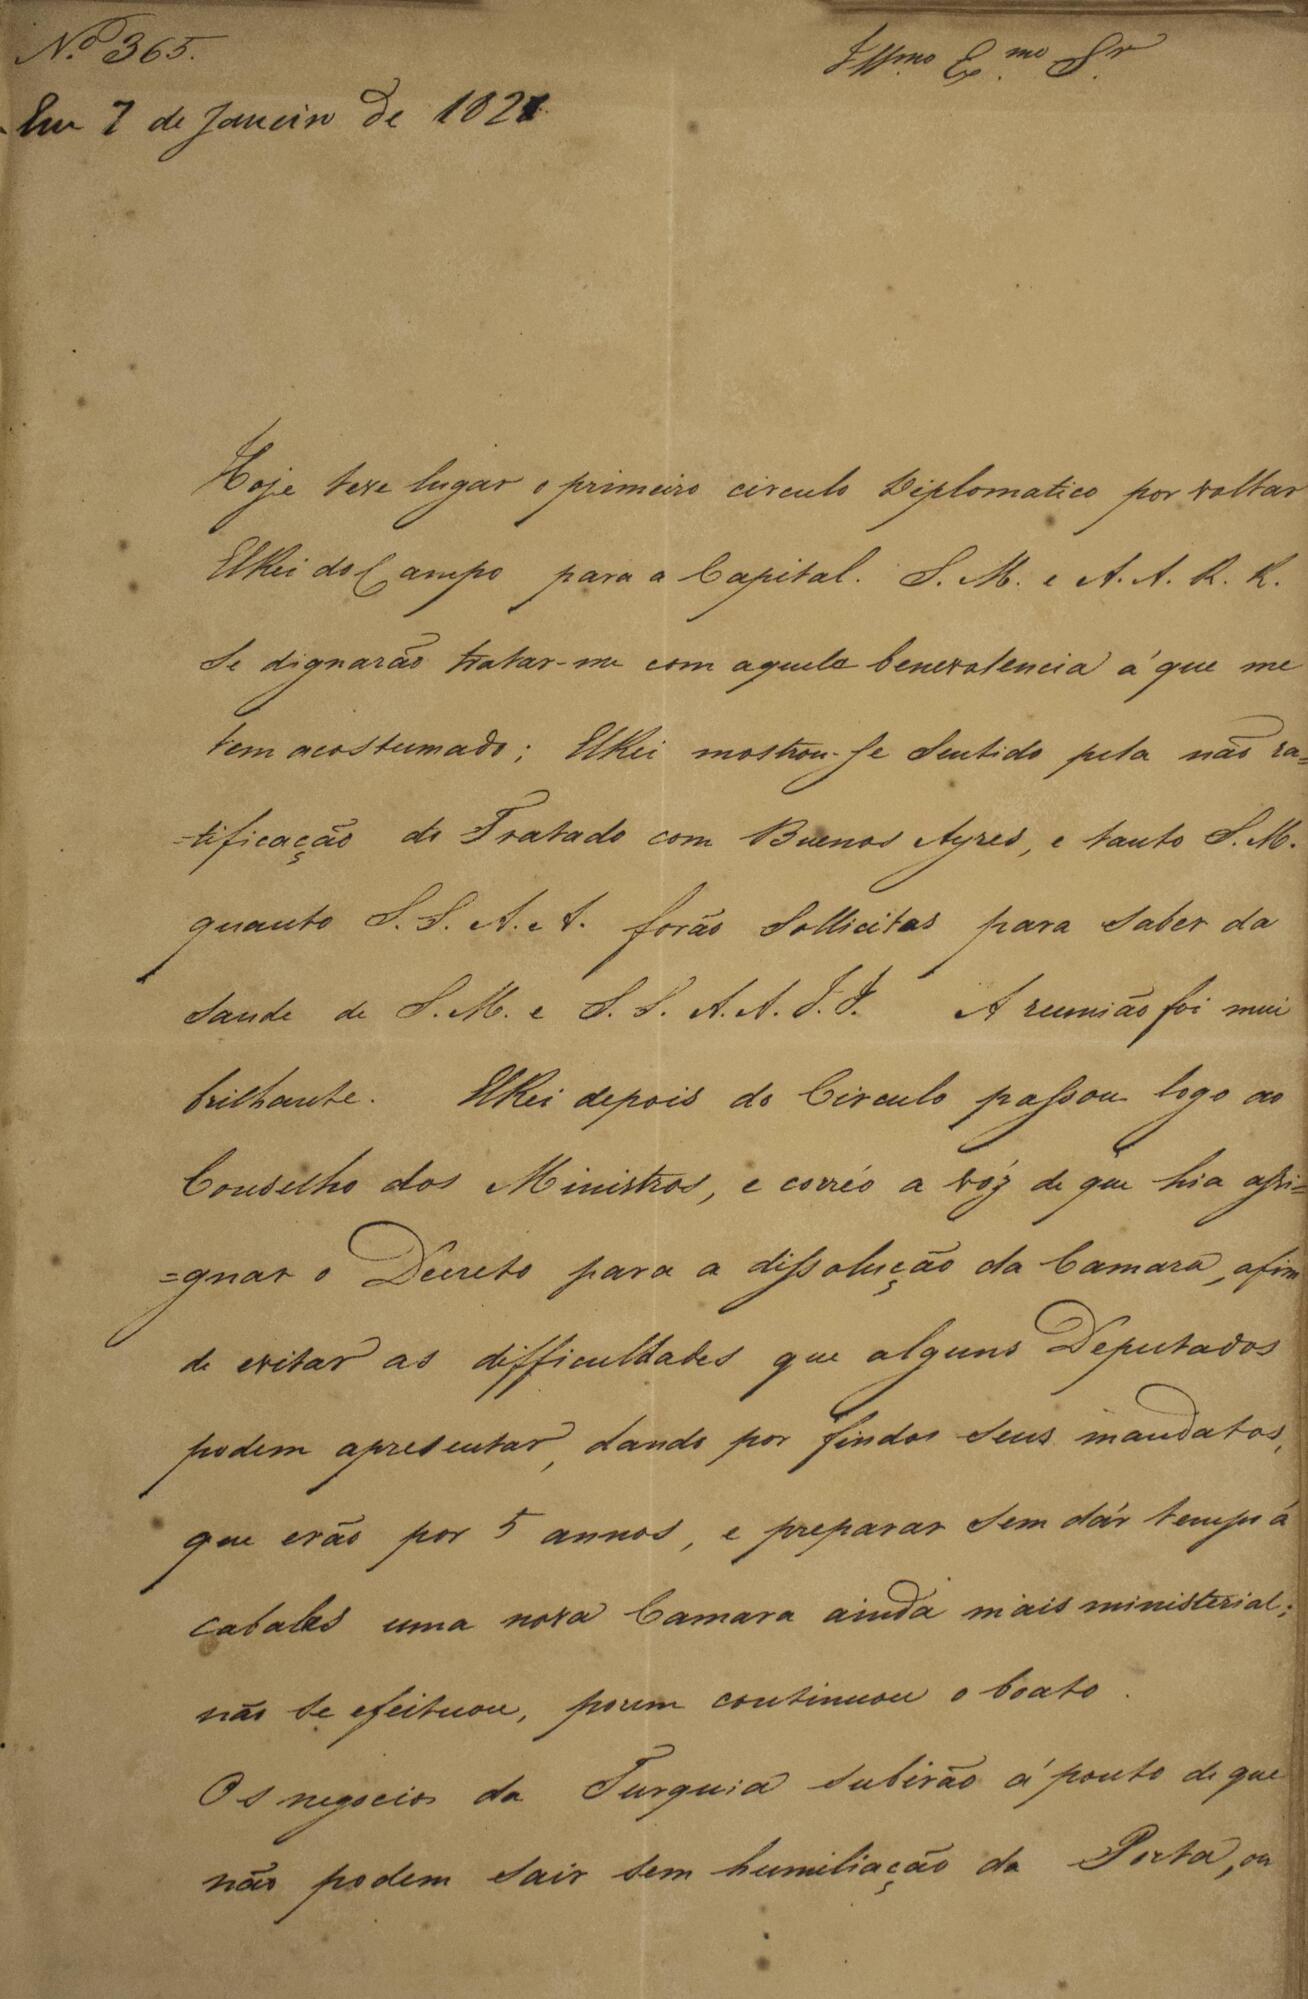 N.º 365.
Illmo. Ex.mo Sr.
Em 7 de Janeiro de 182
Hoje teve lugar o primeiro circulo Diplomatico por voltar
ElRei do Campo para a Capital. S. M. e A. A. R. R.
se dignarão tratar-me com aquela benevolencia á que me
tem acostumado; ElRei mostrou-se sentido pela não ra=
=tificação do Tratado com Buenos Ayres, e tanto S. M.
quanto S. S. A. e A. forão sollicitas para saber da
saude de S. M. e S. S. A. A. I. I. A reunião foi mui
brilhante. ElRei depois do Circulo passou logo ao
Conselho dos Ministros, e corrêo a vóz de que hia assi=
=gnar o Decreto para a dissolução da Camara, afim
de evitar as difficuldades que alguns Deputados
podem apresentar, dando por findos seus mandatos,
que erão por 5 annos, e preparar sem dár tempo á
cabalas uma nova Camara ainda mais ministerial;
não se efeituou, porem continuou o boato.
Os negocios da Turquia subirão á ponto de que
não podem sair sem humiliação da Porta, ou